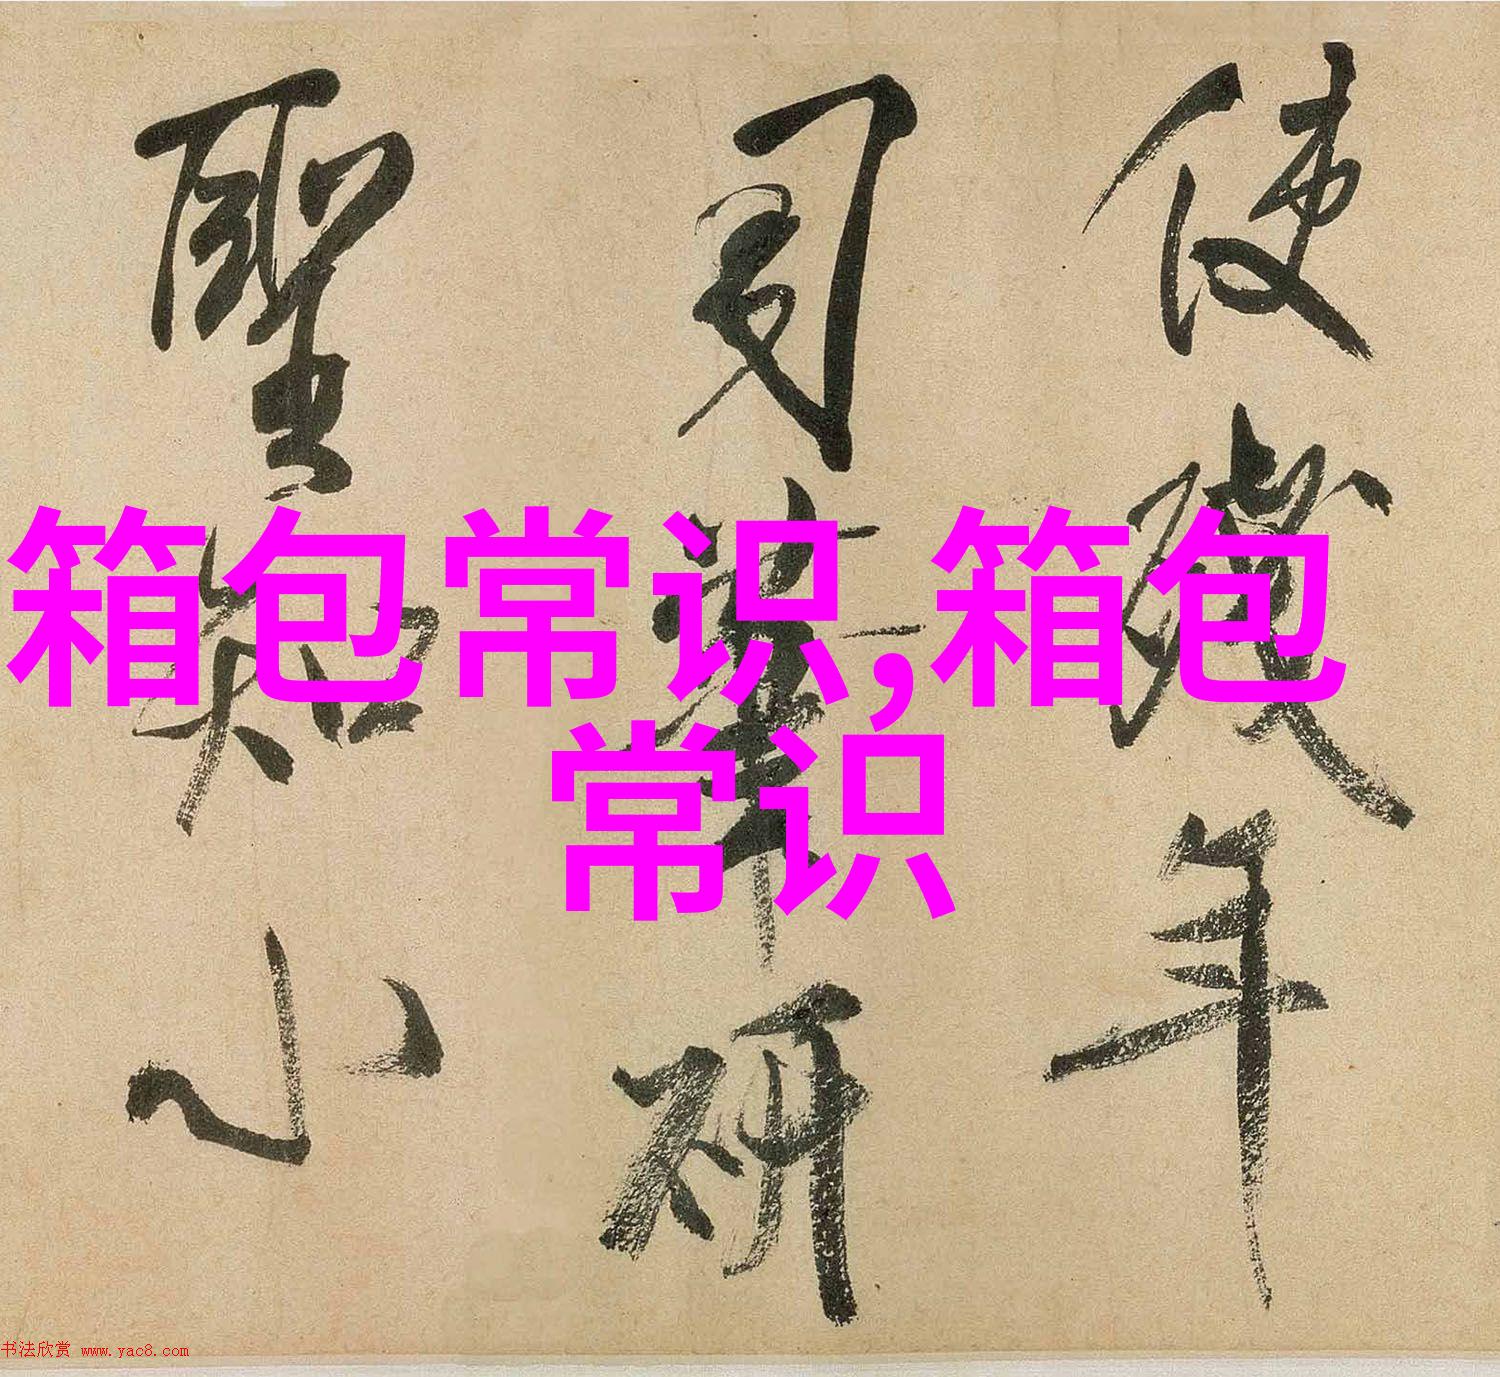 使殘年
司筆研
聖知小
箱包常识,箱包
常识
书法欣赏 www.yac8.com